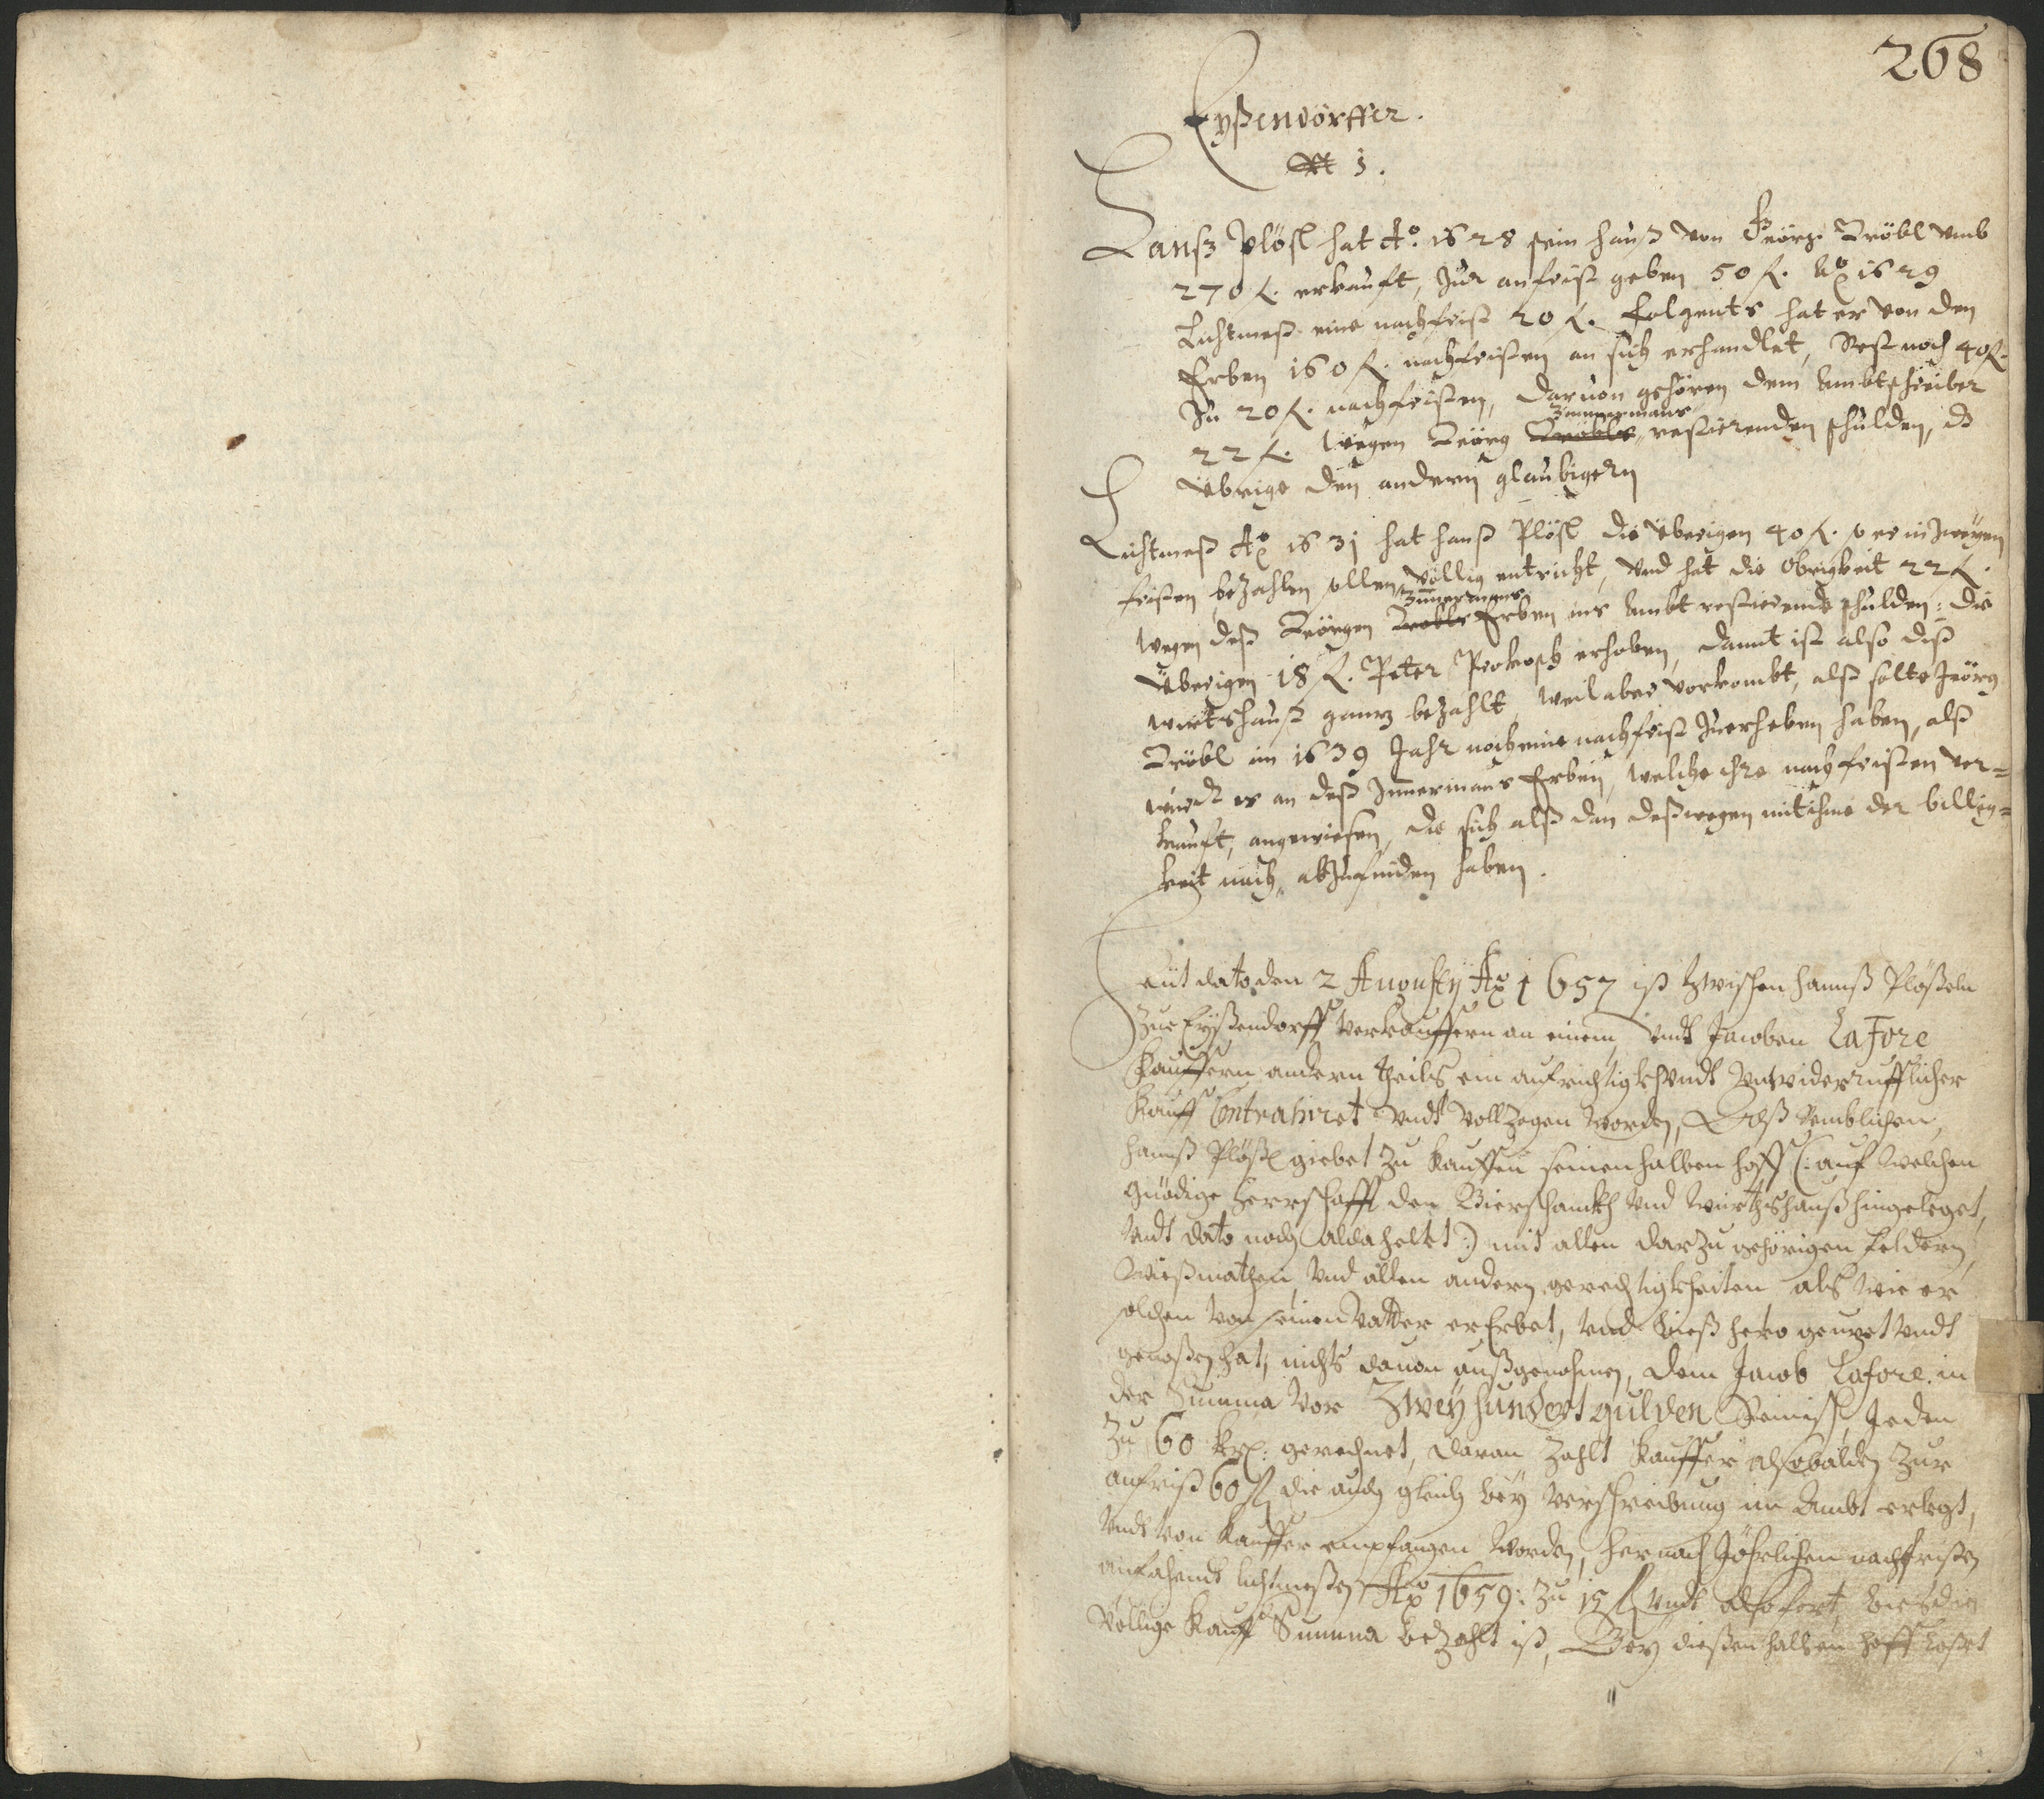 268
Eyßendörffer.
№ 1.
Hanß Plösl hat Ao. 1628 sein hauß von Geörg Tröbl vmb
270 f. erkauft, Zur anfrist geben 50 f. Ao 1629
Lichtmeß eine nachfrist 20 f. folgents hat er von den
Erben 160 f. nachfristen an sich erhandlet, Rest noch 40 f.
Zu 20 f. nachfristen, daruon gehören dem Ambtschreiber
22 f. wegen Geörg Tröbls Zimmermans restierenden schulden, dz
Übrige den andern glaubigern
Lichtmeß Ao 1631 hat Hanß Plösl die Übrigen 40 f. so er in Zweyen
fristen bezahlen sollen völlig entricht, vnd hat die Obrigkeit 22 f.
wegen deß Geörgen Tröbls Zimmermans Erben ins Ambt restierende schulden: die
Übrigen 18 f. Peter Prokosch erhoben, damit ist also diß
wirtshauß gantz bezahlt, weil aber vorkombt, alß solte Geörg
Tröbl im 1639 Jahr noch eine nachfrist Zuerheben haben, alß
wirdt er an deß Zimmermans Erben, welche ihre nachfristen ver=
kauft, angewiesen, die sich alß dan deßwegen mit ihme der billig=
keit nach, abzufinden haben.
Heut dato den 2 Augusty Ao 1657 ist Zwischen Hannß Plößeln
Zue Eyßendorff Verkauffern an einem, Vndt Jacoben LaFore
Kauffern andern theils ein aufrichtig Vndt Vnwiderrufflicher
Kauff Contrahiret Vndt Vollzogen worden, Alß Nemblichen,
Hannß Plößl giebet Zu Kauffen seinen halben hoff (: auf Welchen
gnädige Herrschafft den Bierschankh Vnd Wirthshauß hingeleget,
Vndt dato noch alda helt :) mit allen darzu gehörigen feldern
Wießmathen, Vnd allen andern gerechtigkheiten als wie er
solchen Von seinen Vatter er Erbet, Vnd bieß hero genuzet Vndt
genoßen hat, nichts dauon außgenohmen, dem Jacob Lafore. in
der Summa Vor Zweyhundert gulden Reinisch, Jeden
Zu 60 kr: gerechnet, daran Zahlt Kauffer alsobalden Zur
anfrist 60 f die auch gleich bey Verschreibung im Ambt erlegt,
Vndt Von Kauffer empfangen worden, hernach Jährlichen nachfristen
anfahendt lichtmeßen Ao 1659: Zu 15 f Vndt also fort, bies die
Völlige Kauff Summa bezahlt ist, Bey dießen halben hoff laßet